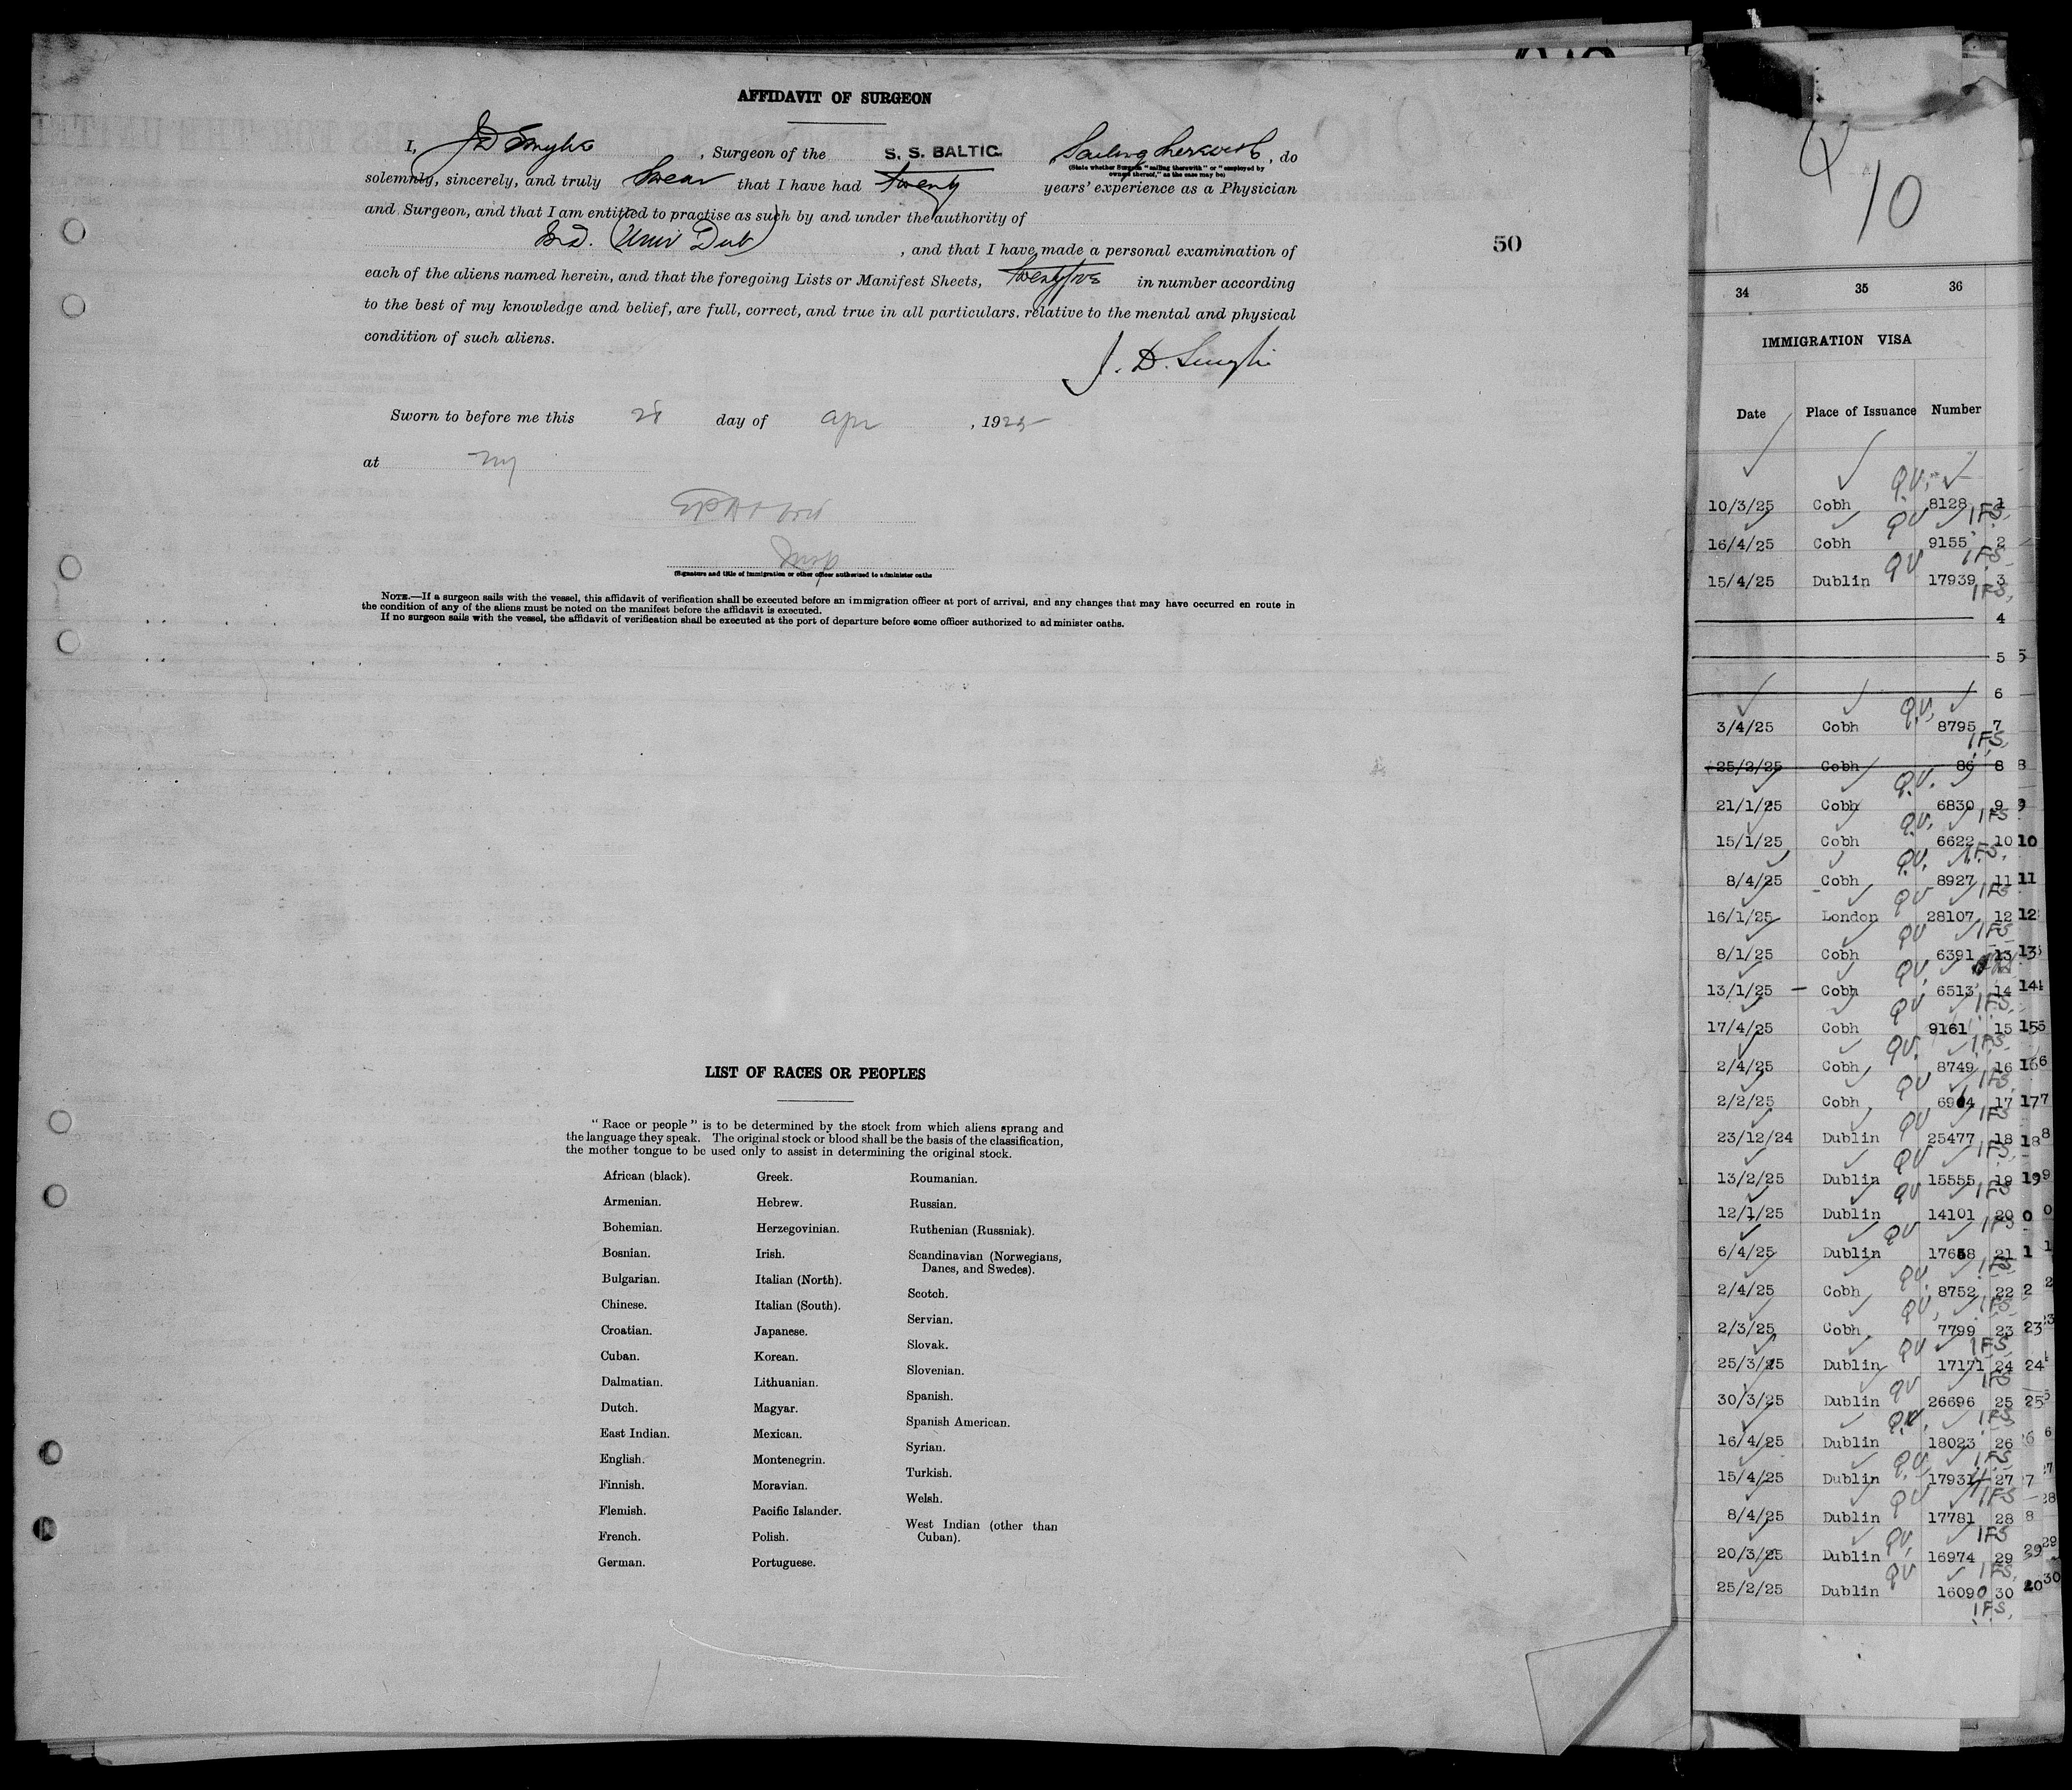 AFFIDAVIT OF SURGEON
I, J D Smyth , Surgeon of the S. S. BALTIC Sailing therewith , do
(State whether Surgeon "sailing therewith" or "employed by
owners thereof," as the case may be)
solemnly, sincerely, and truly swear that I have had twenty years' experience as a Physician
and Surgeon, and that I am entitled to practise as such by and under the authority of
(Univ Dub) , and that I have made a personal examination of
each of the aliens named herein, and that the foregoing Lists or Manifest Sheets, in number according
to the best of my knowledge and belief, are full, correct, and true in all particulars, relative to the mental and physical
condition of such aliens.
J. D. Smyth
Sworn to before me this 28 day of apr , 1925
at NY
Insp
(Signature and title of immigration or other officer authorized to administer oaths
NOTE.—If a surgeon sails with the vessel, this affidavit of verification shall be executed before an immigration officer at port of arrival, and any changes that may have occurred en route in
the condition of any of the aliens must be noted on the manifest before the affidavit is executed.
If no surgeon sails with the vessel, the affidavit of verification shall be executed at the port of departure before some officer authorized to administer oaths.
50
LIST OF RACES OR PEOPLES
"Race or people" is to be determined by the stock from which aliens sprang and
the language they speak. The original stock or blood shall be the basis of the classification,
the mother tongue to be used only to assist in determining the original stock.
African (black).
Armenian.
Bohemian.
Bosnian.
Bulgarian.
Chinese.
Croatian.
Cuban.
Dalmatian.
Dutch.
East Indian.
English.
Finnish.
Flemish.
French.
German.
Greek.
Hebrew.
Herzegovinian.
Irish.
Italian (North).
Italian (South).
Japanese.
Korean.
Lithuanian.
Magyar.
Mexican.
Montenegrin.
Moravian.
Pacific Islander.
Polish.
Portuguese.
Roumanian.
Russian.
Ruthenian (Russniak).
Scandinavian (Norwegians,
Danes, and Swedes).
Scotch.
Servian.
Slovak.
Slovenian.
Spanish.
Spanish American.
Syrian.
Turkish.
Welsh.
West Indian (other than
Cuban).
10
34 35 36
IMMIGRATION VISA
Date Place of Issuance Number
10/3/25 Cobh Q.V. 8128 1 IFS.
16/4/25 Cobh QV 9155 2 IFS.
15/4/25 Dublin QV 17939 3 IFS.
4
5 5
6
3/4/25 Cobh Q.V. 8795 7 IFS.
25/2/25 Cobh 86 8 8
21/1/25 Cobh Q.V. 6830 9 9 IFS
15/1/25 Cobh Q.V. 6622 10 10 IFS.
8/4/25 Cobh Q.V. 8927 11 11 IFS
16/1/25 London QV 28107 12 12 IFS
8/1/25 Cobh QV 6391 13 13
13/1/25 Cobh QV. 6513 14 14 IFS.
17/4/25 Cobh QV 9161 15 15 IFS.
2/4/25 Cobh QV. 8749 16 16 IFS.
2/2/25 Cobh QV 17 17 IFS
23/12/24 Dublin QV 25477 18 18 IFS.
13/2/25 Dublin QV 15555 19 19 IFS
12/1/25 Dublin QV 14101 20 0 IFS
6/4/25 Dublin QV 21 1 IFS
2/4/25 Cobh QV. 8752 22 2 IFS.
2/3/25 Cobh QV. 7799 23 23 IFS.
25/3/25 Dublin QV 17171 24 24 IFS
30/3/25 Dublin QV 26696 25 25 IFS
16/4/25 Dublin Q.V. 18023 26 IFS.
15/4/25 Dublin Q.V. 27 7 IFS
8/4/25 Dublin QV 17781 28 8 IFS
20/3/25 Dublin QV. 16974 29 29 IFS.
25/2/25 Dublin QV 16090 30 30 IFS.